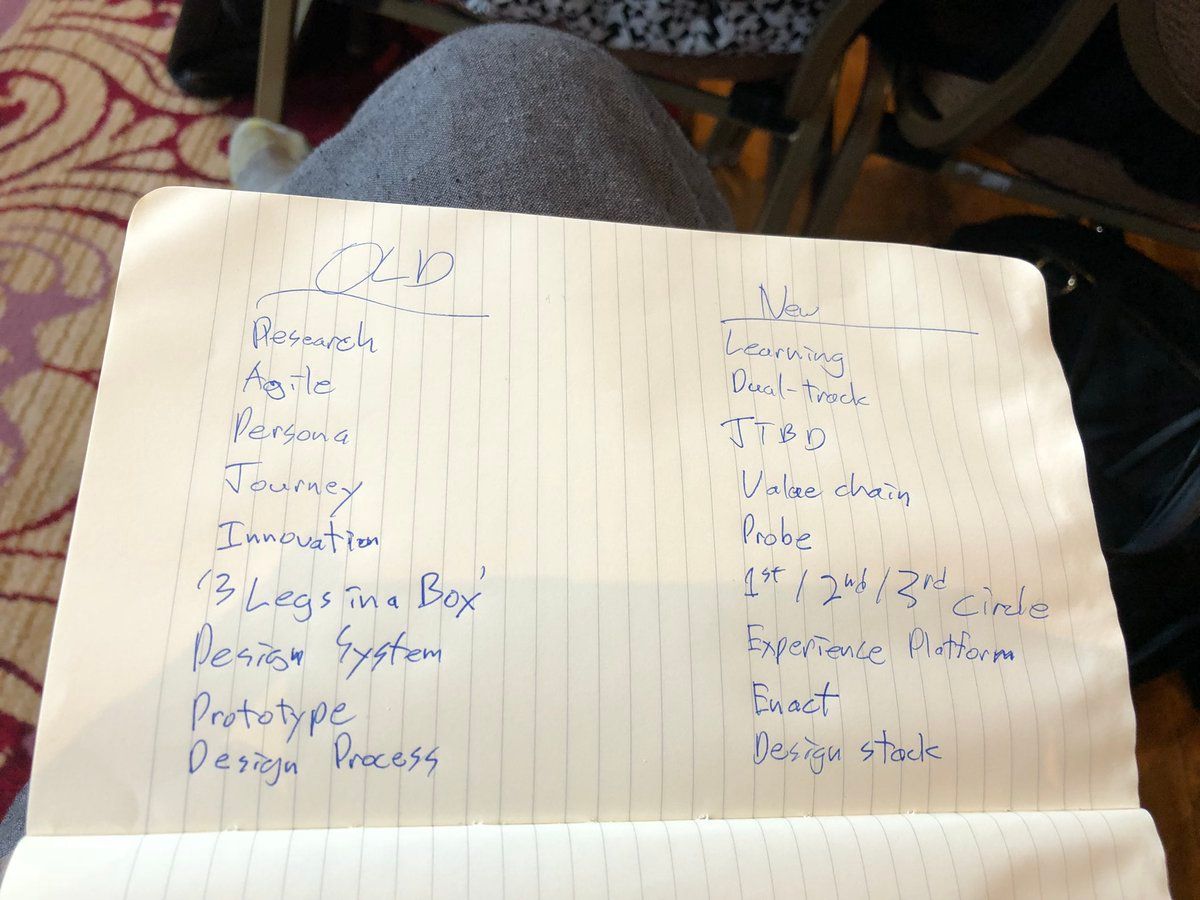 OLD
Research
Agile
Persona
Journey
Innovation
'3 Legs in a Box'
Design System
Prototype
Design Process
New
Learning
Dual-track
JTBD
Value chain
Probe
1st / 2nd / 3rd Circle
Experience Platform
Enact
Design stack